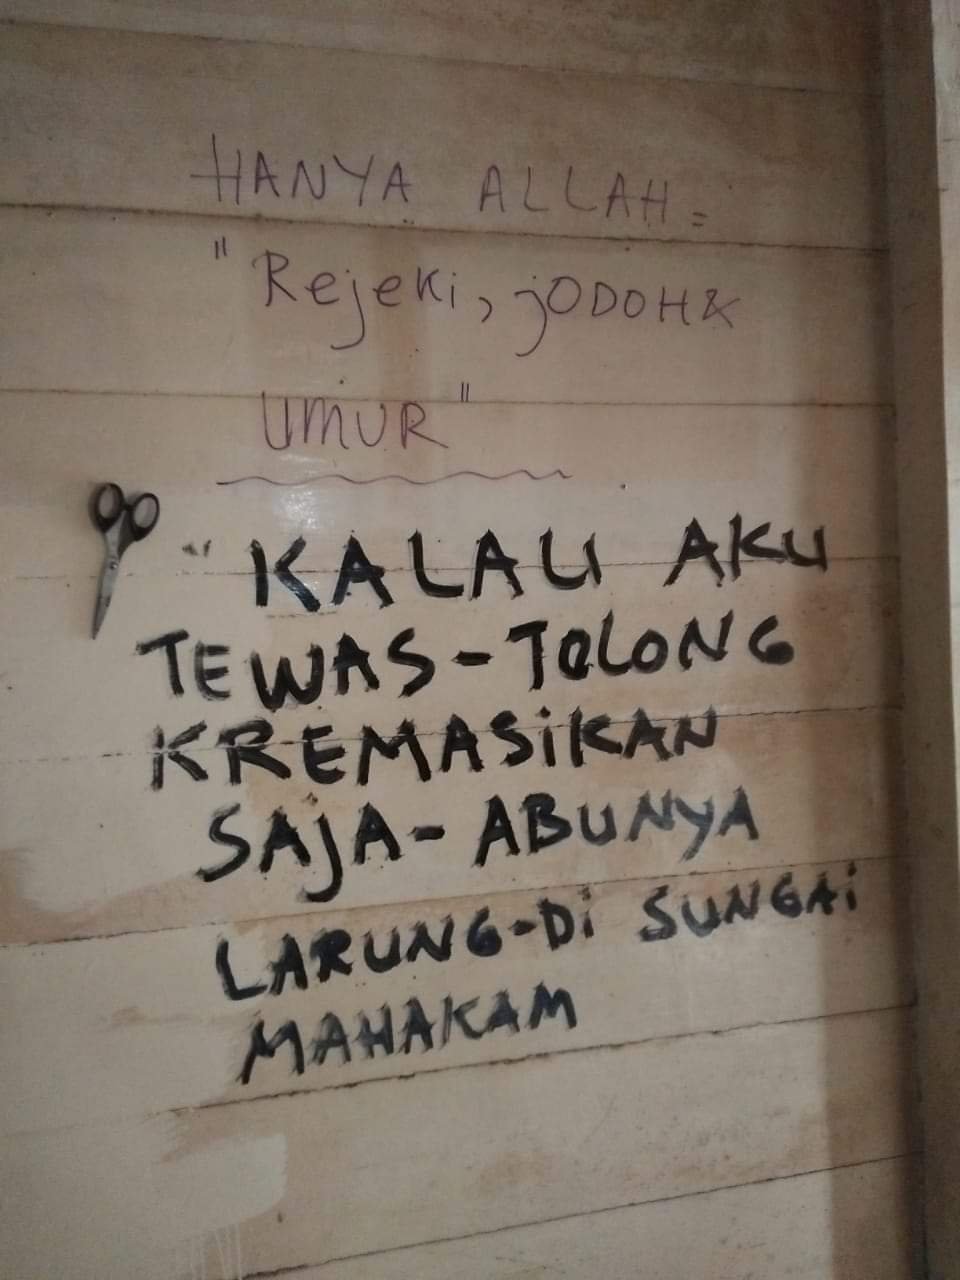 HANYA ALLAH =
"Rejeki, jODOH &
UMUR"
"KALAU AKU
TEWAS - TOLONG
KREMASiKAN
SAJA - ABUNYA
LARUNG - Di SUNGAi
MAHAKAM